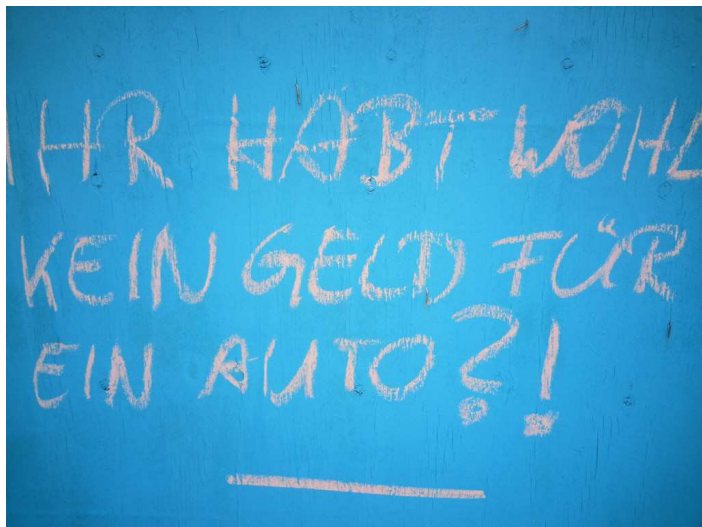 IHR HABT WOHL
KEIN GELD FÜR
EIN AUTO?!